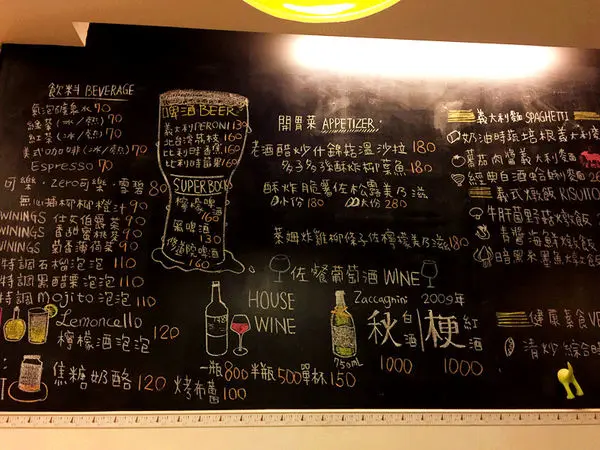 飲料 BEVERAGE
氣泡礦泉水 70
綠茶(冰/熱) 70
紅茶(冰/熱) 70
美式咖啡(冰/熱) 70
Espresso 70
可樂・zero可樂・雪碧 80
無心插柳柳橙汁 90
WININGS 仕女伯爵茶 90
WININGS 香甜蜜桃茶 90
NINGS 菊香薄荷茶 90
特調石榴泡泡 110
特調黑醋栗泡泡 110
特調mojito泡泡 110
Lemoncello
檸檬酒泡泡 120
焦糖奶酪 120
烤布蕾 100
啤酒 BEER
義大利PERONI 130
160
比利時 160
比利時 160
SUPER BOCK
檸檬啤酒
160
黑啤酒
130
啤酒
160
開胃菜 APPETIZER:
老酒醋炒什錦菇溫沙拉 180
多子多孫酥炸柳葉魚 180
酥炸脆薯佐松露美乃滋
小份 180 大份 280
萊姆炸雞柳條子佐檸檬美乃滋 180
佐餐葡萄酒 WINE
HOUSE
WINE
一瓶 800 半瓶 500 單杯 150
Zaccagnini 2009年
750ml
秋 白酒 梗 紅酒
1000 1000
義大利麵 SPAGHETTI
奶油時蔬培根義大利
蕃茄肉醬義大利麵
經典白酒蛤蜊
義式燉飯 RISOTTO
牛肝菌野菇燉飯
青醬海鮮燉飯
暗黑系墨魚燉飯
健康素食 VE
清炒綜合時